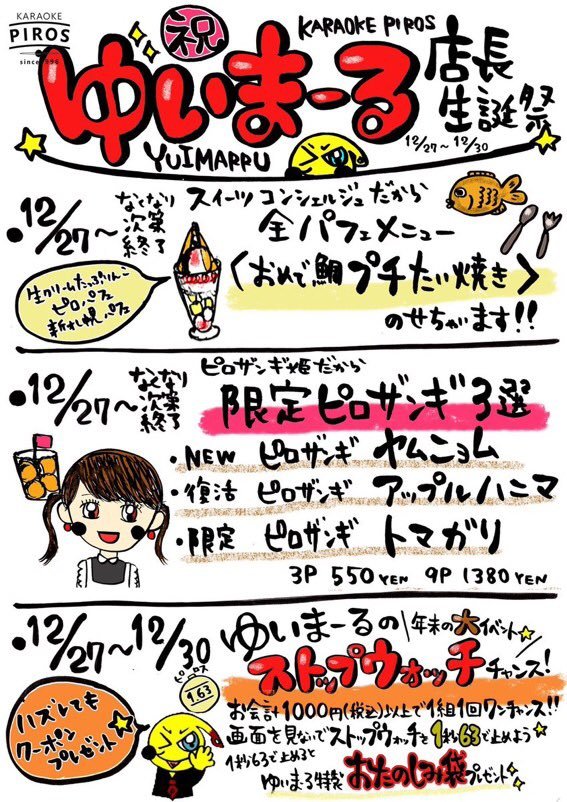 KARAOKE
PIROS
since 1996
祝
KARAOKE PIROS
ゆいまーる
店長
生誕祭
YUIMARRU
12/27〜12/30
・12/27〜
なくなり
次第
終了
スイーツコンシェルジュだから
全パフェメニュー
〈おめで鯛プチたい焼き〉
のせちゃいます!!
生クリームたっぷりんご
ピロパフェ
新札幌パフェ
・12/27〜
なくなり
次第
終了
ピロザンギ姫だから
限定ピロザンギ3選
・NEW ピロザンギ ヤムニョム
・復活 ピロザンギ アップルハニマ
・限定 ピロザンギ トマガリ
3P 550YEN 9P 1380YEN
・12/27〜12/30
ゆいまーるの
年末の大イベント
ストップウォッチチャンス!
ハズレても
クーポン
プレゼント
ピロス
1.63
お会計1000円(税込)以上で1組1回ワンチャンス!!
画面を見ないでストップウォッチを1秒63で止めよう
1秒63で止めると
ゆいまーる特製 おたのしみ袋プレゼント